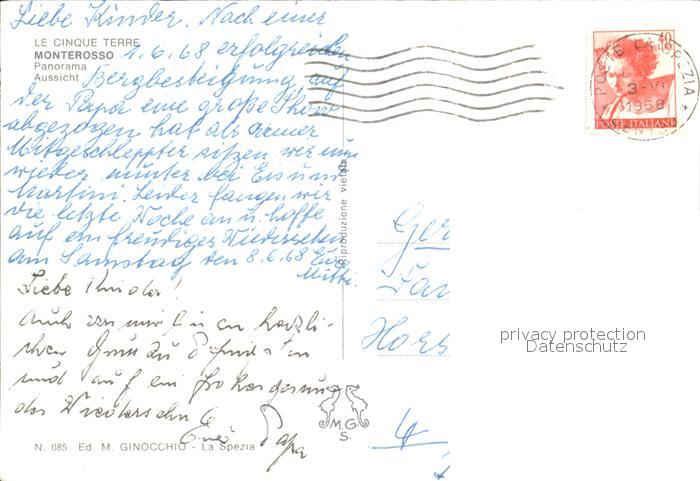 Liebe Kinder. Nach einer
LE CINQUE TERRE
MONTEROSSO 1.6.68 erfolgreichen
Panorama
Aussicht Bergbesteigung, auf
der Papa eine große Show
abgezogen hat als armer
Mitgeschleppter sitzen wir nun
wieder munter bei Eis und
Martini. Leider fangen wir
die letzte Woche an u. hoffe
auf ein freudiges Wiedersehen
am Samstag den 8.6.68 Eure
Mutti.
Liebe Kinder!
Auch von mir einen herzli-
chen Gruss zu Pfingsten
und auf ein frohes gesundes
Wiedersehn
Euer Papa
N. 085 Ed. M. GINOCCHIO - La Spezia
M.G.
S.
Riproduzione vietata
40
LIRE
POSTE LA SPEZIA
3-VI
1968
POSTE ITALIANE
Ger
Fam
Hors
4
privacy protection
Datenschutz